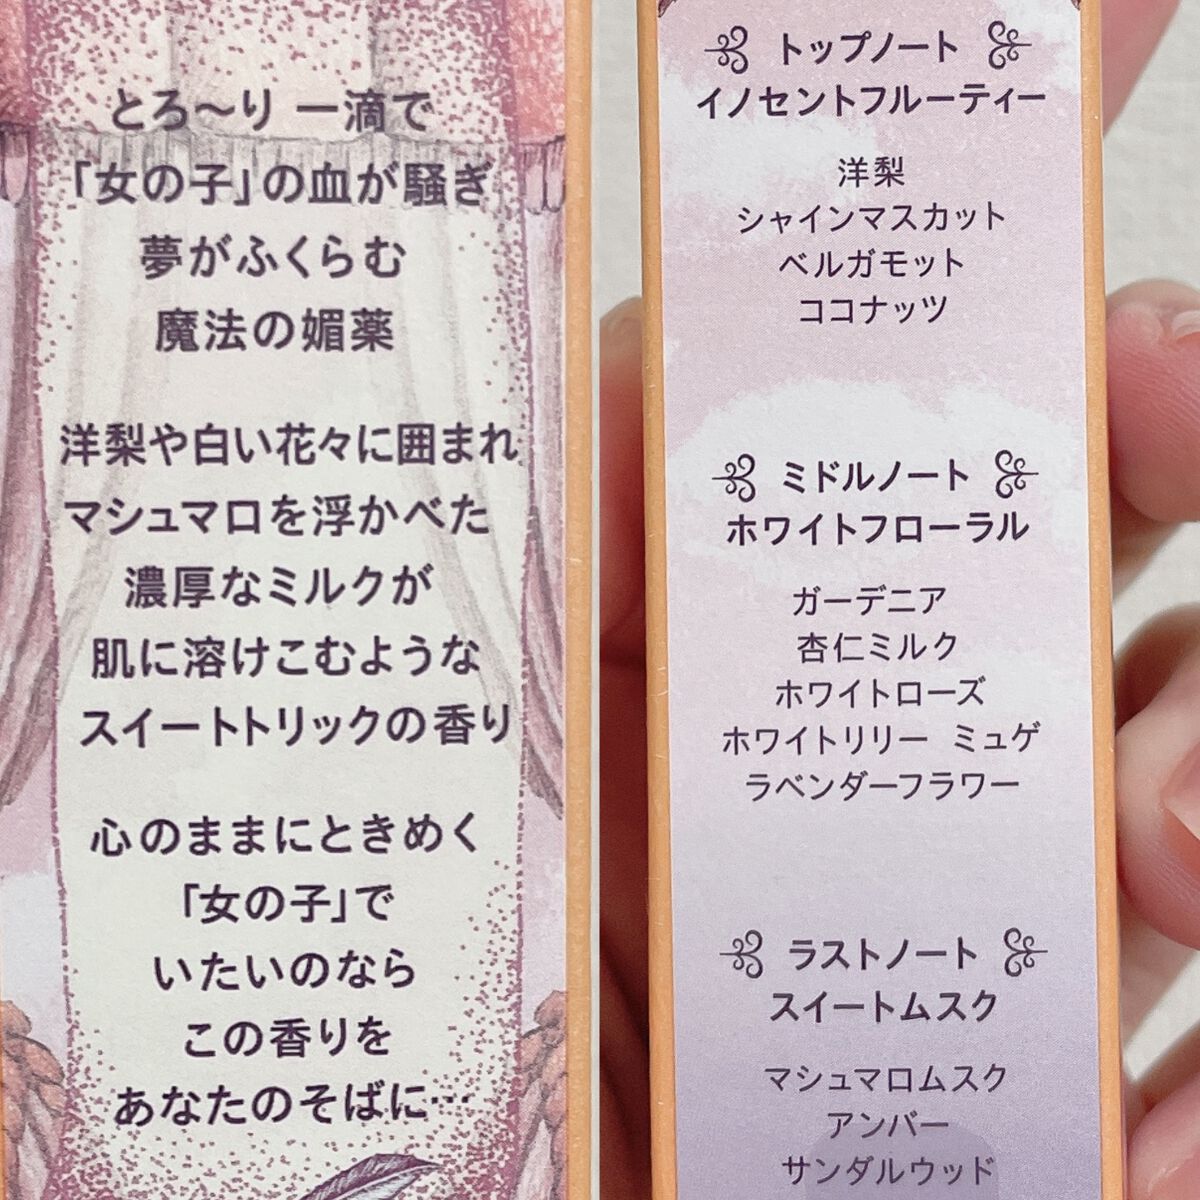 とろ〜り 一滴で
「女の子」の血が騒ぎ
夢がふくらむ
魔法の媚薬
洋梨や白い花々に囲まれ
マシュマロを浮かべた
濃厚なミルクが
肌に溶けこむような
スイートトリックの香り
心のままにときめく
「女の子」で
いたいのなら
この香りを
あなたのそばに…
トップノート
イノセントフルーティー
洋梨
シャインマスカット
ベルガモット
ココナッツ
ミドルノート
ホワイトフローラル
ガーデニア
杏仁ミルク
ホワイトローズ
ホワイトリリー ミュゲ
ラベンダーフラワー
ラストノート
スイートムスク
マシュマロムスク
アンバー
サンダルウッド